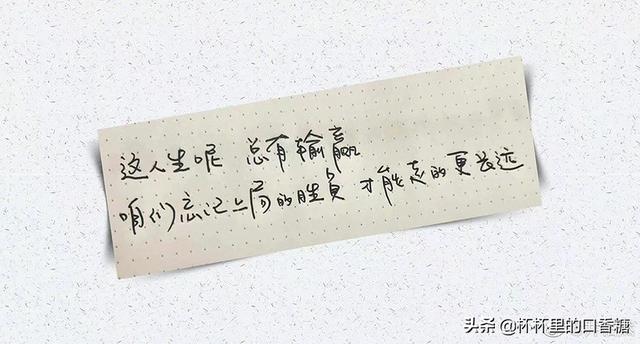 这人生呢 总有输赢
咱们忘记上局的胜负 才能走的更长远
头条 @杯杯里的口香糖